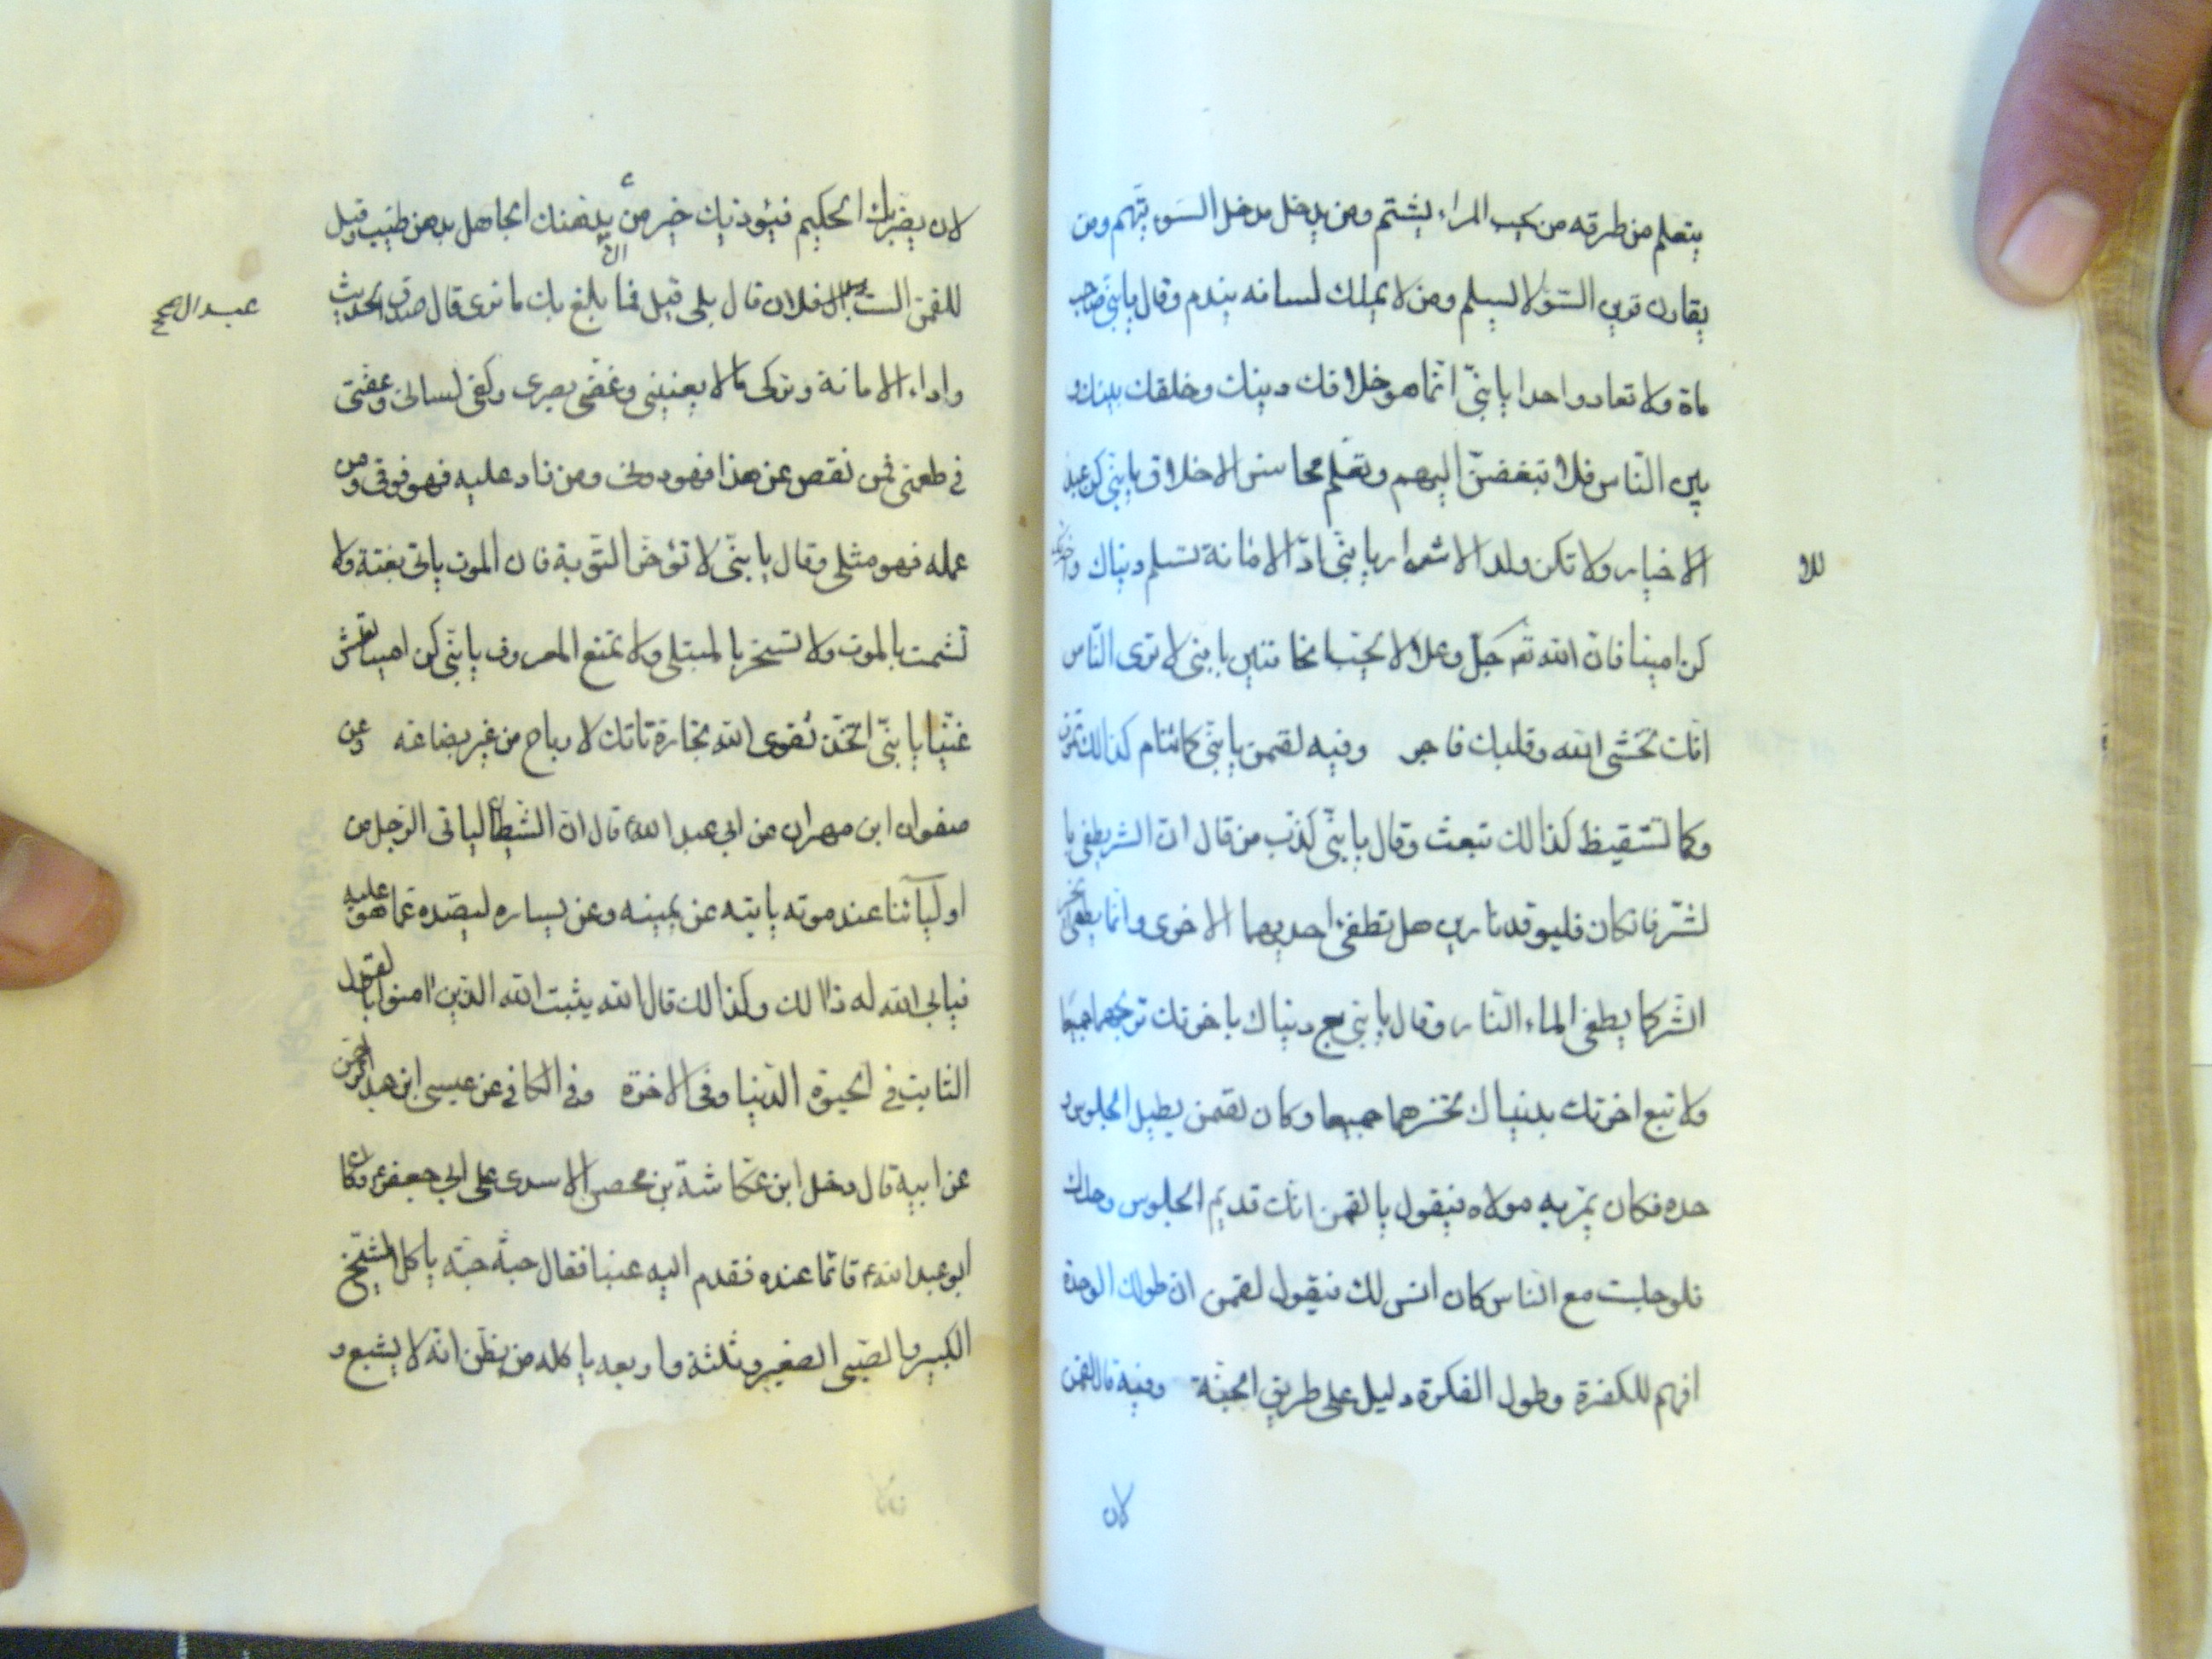 يتعلم من طرقه من يحب المراء يشتم ومن يدخل مدخل السوء يتهم ومن
يقارن قرين السوء لا يسلم ومن لا يملك لسانه يندم وقال يا بنى صاحب
ماة ولا تعاد واحدا يا بنىّ انما هو خلاقك دينك وخلقك بينك و
بين الناس فلا تبغضن اليهم وتعلم محاسن الاخلاق يا بنى كن عبد
الاخيار ولا تكن ولد الاشرار يا بنى ادّ الامانة تسلم دنياك واخرتك
للا
كن امينا فان الله تعم جل وعلا لا يحب الخائنين يا بنى لا ترى الناس
انك تخشى الله وقلبك فاجر وفيه لقمن يا بنى كما تنام كذلك تموت
وكما تستقيظ كذالك تبعث وقال يا بنى كذب من قال ان الشر يطفى با
لشر فانكان فليوقد نارين هل تطفئ احديهما الاخرى وانما يطفى الخير
الشر كما يطفى الماء النار وقال يا بنى بع دنياك باخرتك تربحهما جميعا
ولا تبع اخرتك بدنياك تخسرهما جميعا وكان لقمن يطيل الجلوس و
حده فكان يمر به مولاه فيقول يا لقمن انك قديم الجلوس وحدك
فلو جلست مع الناس كان انس لك فيقول لقمن ان طول الوحدة
افهم للكفرة وطول الفكرة دليل على طريق الجنة وفيه قال لقمن
لان
لان يضربك الحكيم فيؤذيك خير من ان يدهنك الجاهل بدهن طيب وقيل
للقمن الست عبد ال فلان قال بلى قيل فما بلغ بك ما نرى قال صدق الحديث
عبد ال صح
واداء الامانة وتركى ما لا يعنينى وغضى بصرى وكفى لسانى وعفتى
فى طعمتى فمن نقص عن هذا فهو دونى ومن زاد عليه فهو فوقى ومن
عمله فهو مثلى وقال يا بنى لا تؤخر التوبة فان الموت ياتى بغتة ولا
تشمت بالموت ولا تسخر بالمبتلى ولا تمنع المعروف يا بنى كن امينا تعش
غنيا يا بنى اتخذ تقوى الله تجارة تاتك لارباح من غير بضاعه وعن
صفوان ابن مهران عن ابى عبد الله ع قال ان الشيطان لياتى الرجل من
اوليائنا عند موته ياتيه عن يمينه وعن يساره ليصده عما هو عليه
فيابى الله له ذالك وكذالك قال الله يثبت الله الذين امنوا بالقول
الثابت فى الحيوة الدنيا وفى الاخرة وفى الكافى عن عيسى ابن عبد الرحمن
عن ابيه قال دخل ابن عكاشة بن محصن الاسدى على ابى جعفر ع وكان
ابو عبد الله ع قائما عنده فقدم اليه عنبا فقال حبة حبة ياكل الشيخ
الكبير والصبى الصغير وثلثة واربعه ياكله من يظن انه لا يشبع و